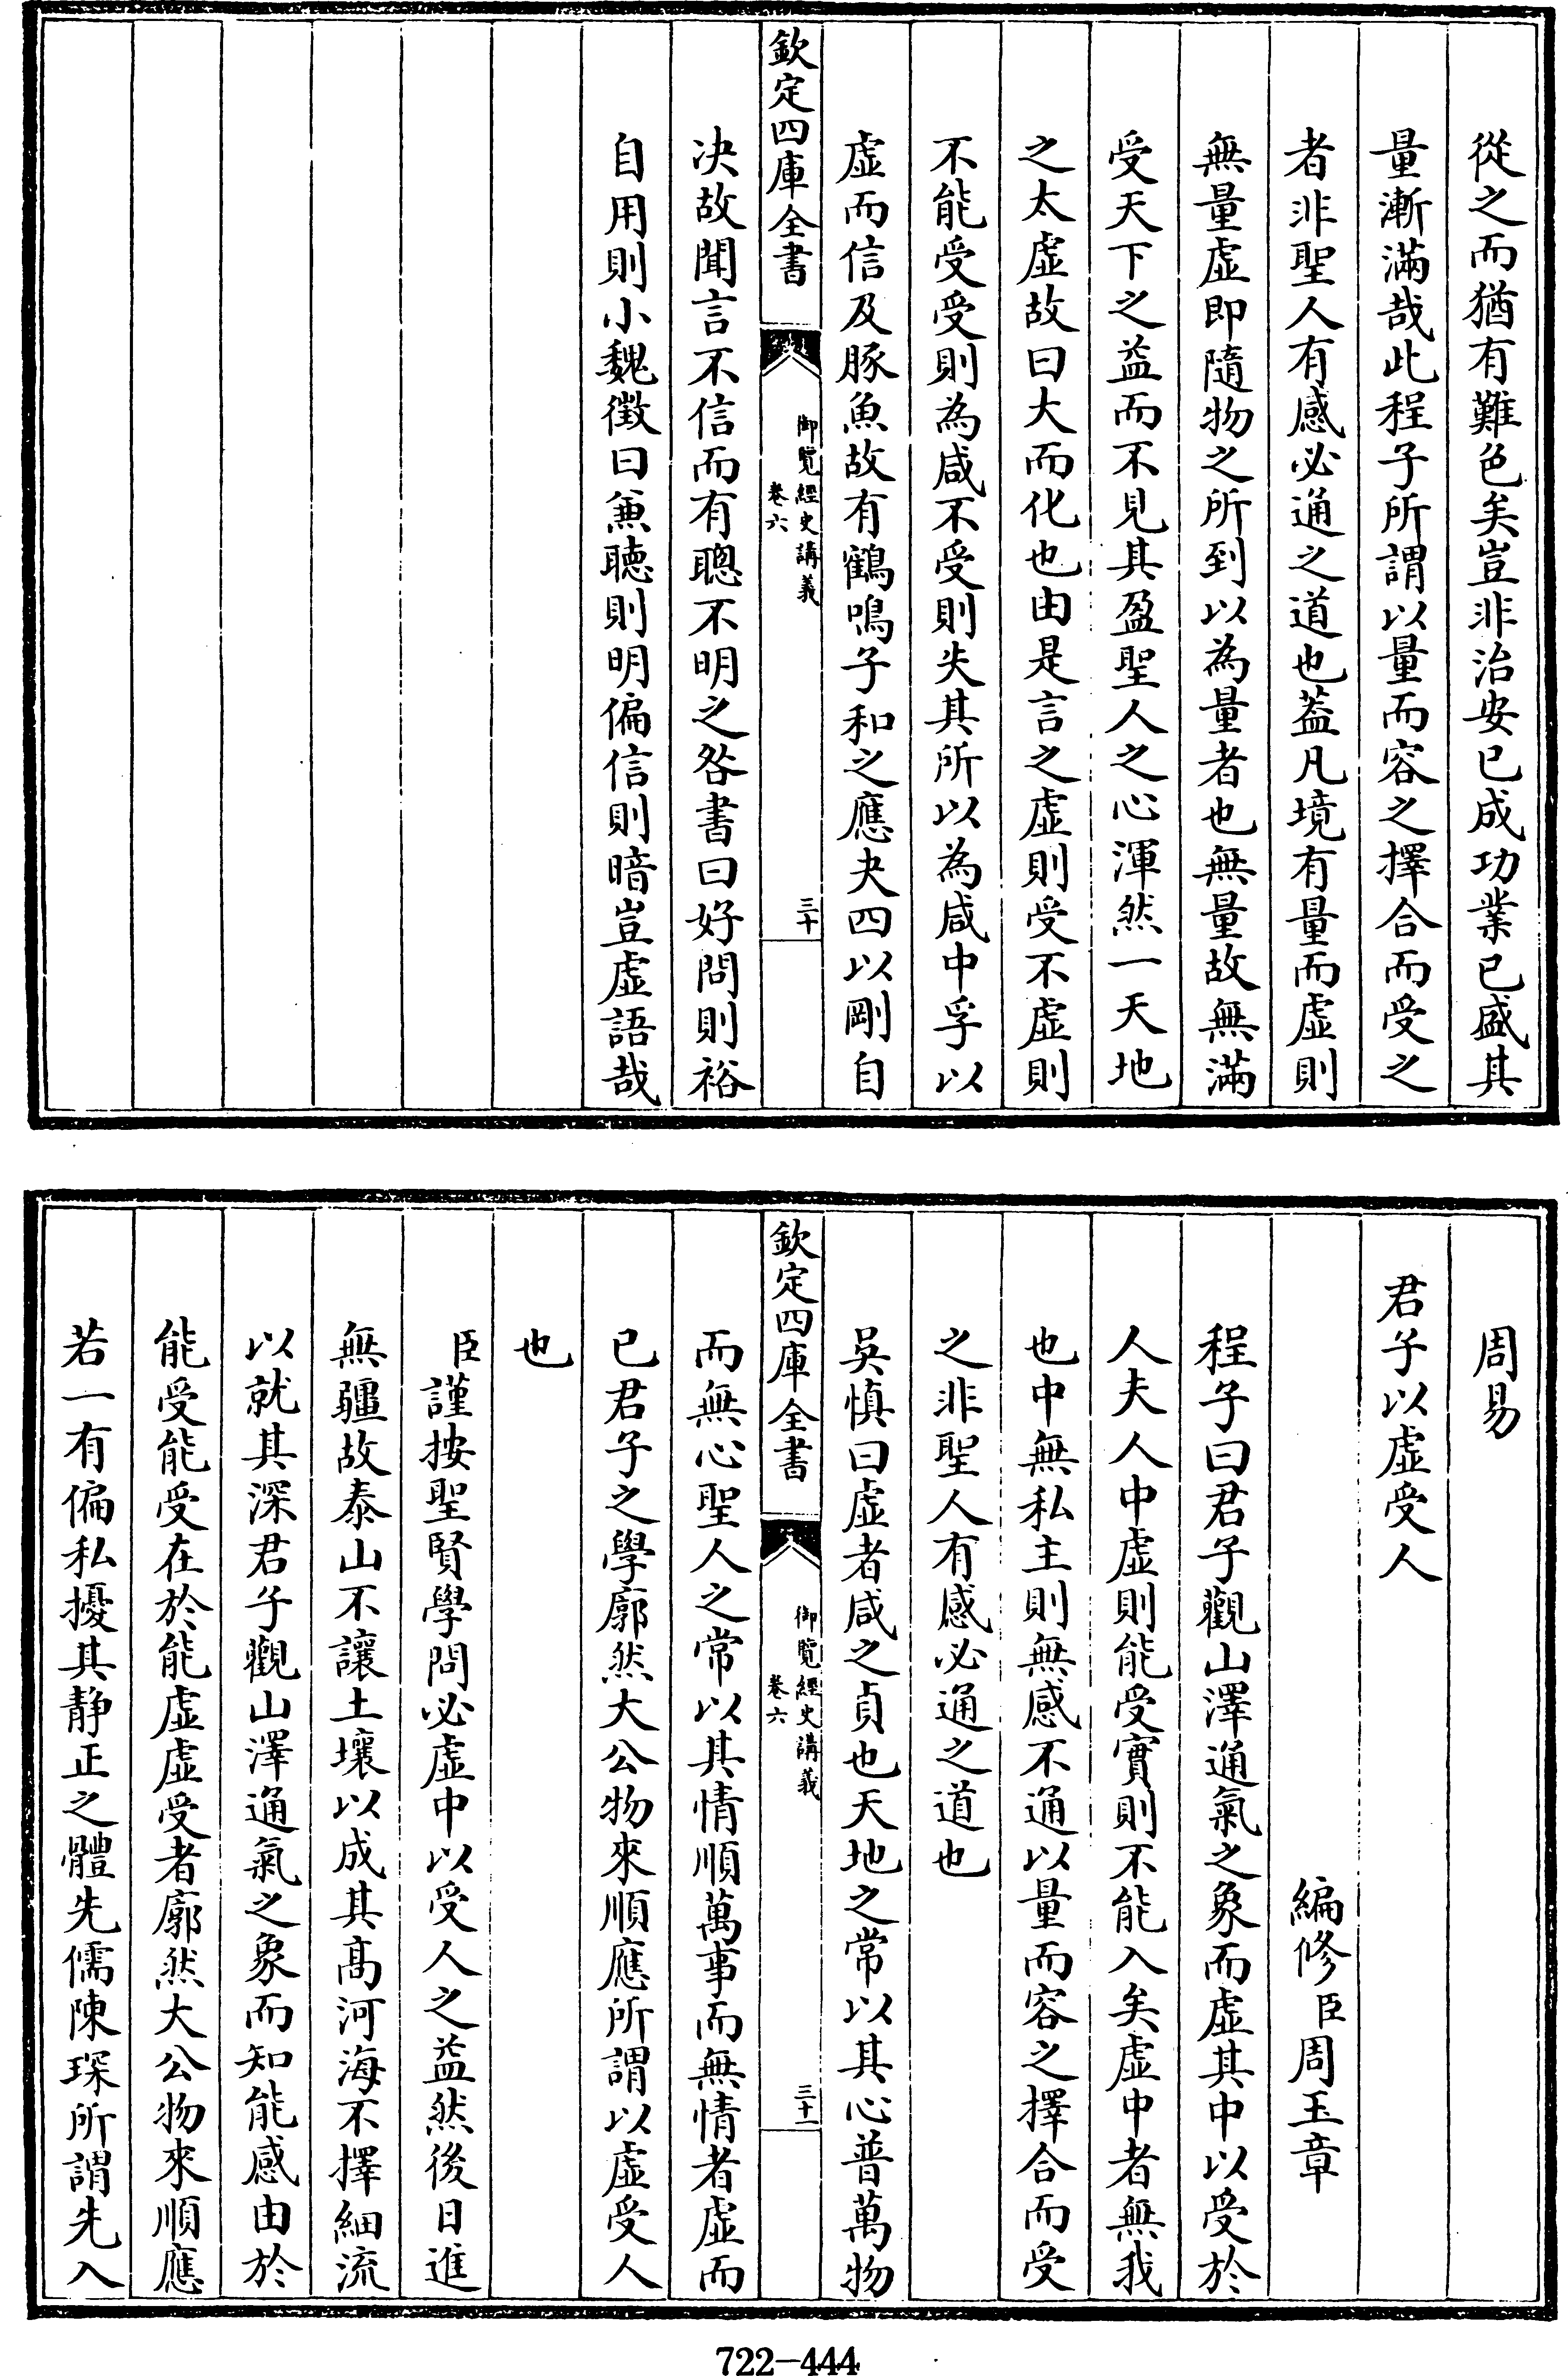 從之而猶有難色矣豈非治安已成功業已盛其
量漸滿哉此程子所謂以量而容之擇合而受之
者非聖人有感必通之道也葢凡境有量而虛則
無量虛即隨物之所到以為量者也無量故無滿
受天下之益而不見其盈聖人之心渾然一天地
之太虛故曰大而化也由是言之虛則受不虛則
不能受受則為咸不受則失其所以為咸中孚以
虛而信及豚魚故有鶴鳴子和之應夬四以剛自
欽定四庫全書
御覽經史講義
卷六
三十
决故聞言不信而有聰不明之咎書曰好問則裕
自用則小魏徵曰兼聽則明偏信則暗豈虛語哉
周易
君子以虛受人
編修臣周玉章
程子曰君子觀山澤通氣之象而虛其中以受於
人夫人中虛則能受實則不能入矣虛中者無我
也中無私主則無感不通以量而容之擇合而受
之非聖人有感必通之道也
吳慎曰虛者咸之貞也天地之常以其心普萬物
欽定四庫全書
御覽經史講義
卷六
三十一
而無心聖人之常以其情順萬事而無情者虛而
已君子之學廓然大公物來順應所謂以虛受人
也
臣謹按聖賢學問必虛中以受人之益然後日進
無疆故泰山不讓土壤以成其髙河海不擇細流
以就其深君子觀山澤通氣之象而知能感由於
能受能受在於能虛虛受者廓然大公物來順應
若一有偏私擾其静正之體先儒陳琛所謂先入
722-444